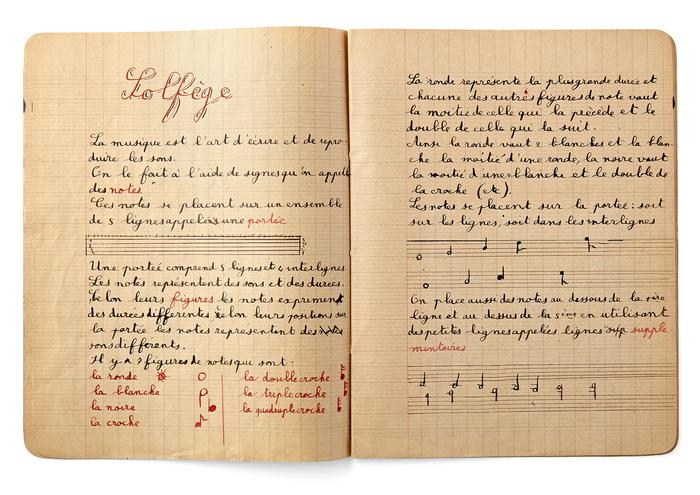 Solfège
La musique est l'art d'écrire et de repro-
duire les sons.
On le fait à l'aide de signes qu'on appelle
des notes.
Ces notes se placent sur un ensemble
de 5 lignes appelées une portée
Une portée comprend 5 lignes et 4 interlignes.
Les notes représentent des sons et des durées.
Selon leurs figures les notes expriment
des durées différentes selon leurs positions sur
la portée les notes représentent des
sons différents.
Il y a 7 figures de notes qui sont :
la ronde
la blanche
la noire
la croche
la double croche
la triple croche
la quadruple croche
La ronde représente la plus grande durée et
chacune des autres figures de note vaut
la moitié de celle qui la précède et le
double de celle qui la suit.
Ainsi la ronde vaut 2 blanches et la blan-
che la moitié d'une ronde, la noire vaut
la moitié d'une blanche et le double de
la croche (etc).
Les notes se placent sur la portée : soit
sur les lignes, soit dans les interlignes
On place aussi des notes au dessous de la 1ère
ligne et au dessus de la 5ème en utilisant
des petites lignes appelées lignes supplé-
mentaires